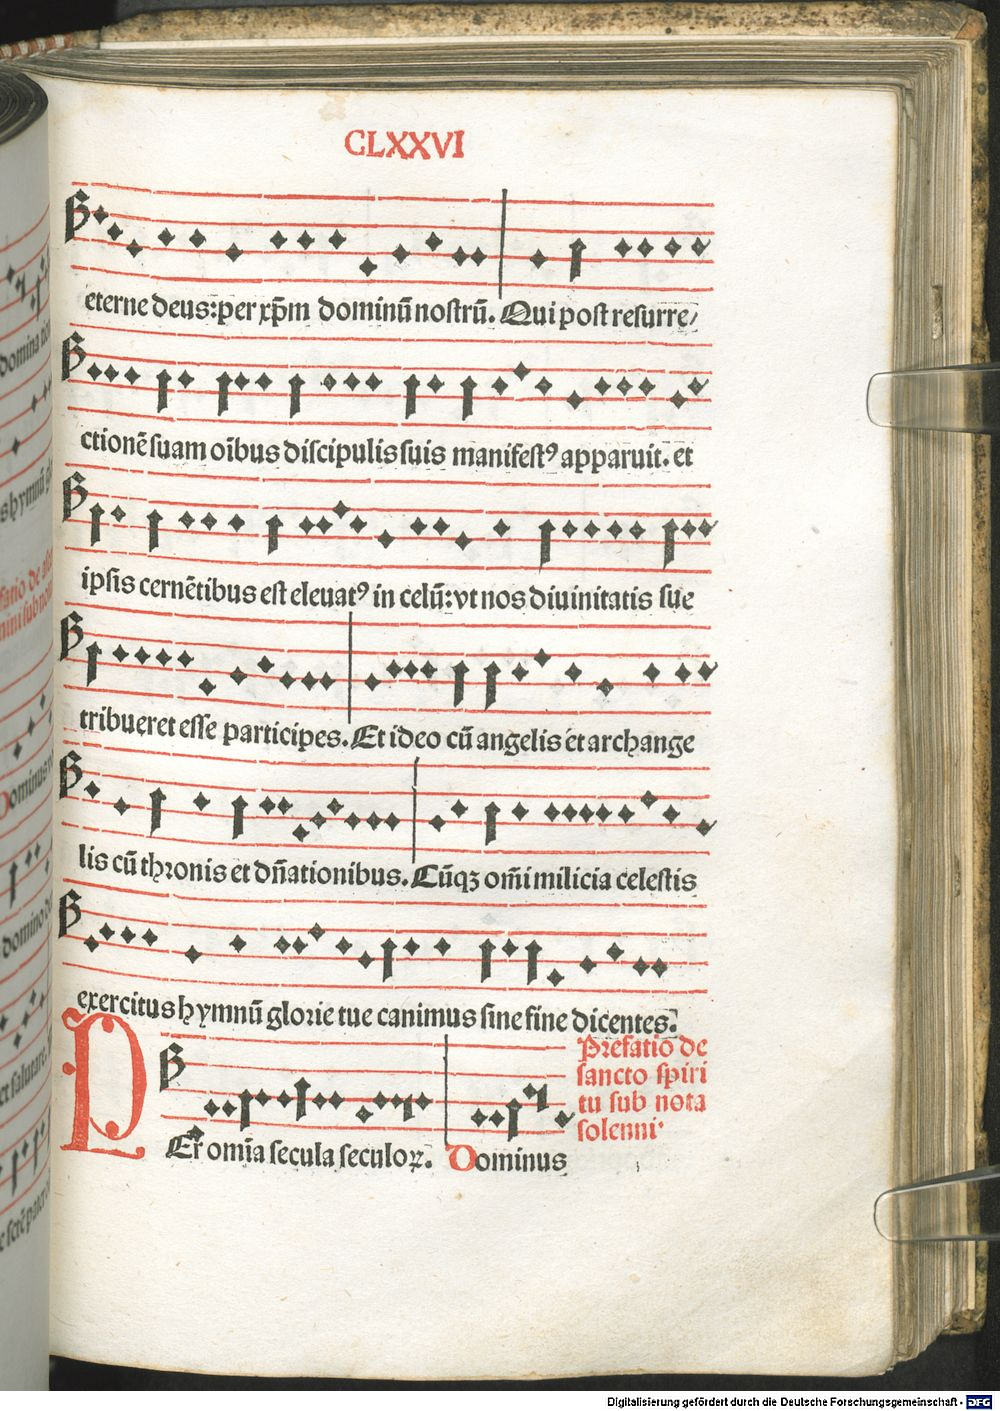 CLXXVI
eterne deus:per xp̄m dominū nostrū. Qui post resurre/
ctionē suam oībus discipulis suis manifestꝰ apparuit. et
ipsis cernētibus est eleuatꝰ in celū:vt nos diuinitatis sue
tribueret esse participes. Et ideo cū angelis et archange
lis cū thronis et dn̄ationibus. Cūqꝫ om̄i milicia celestis
exercitus hymnū glorie tue canimus sine fine dicentes.
Prefatio de
sancto spiri
tu sub nota
solenni
PEr omīa secula seculoꝝ. Dominus
domina
s hymnū
Dominus
domino
Digitalisierung gefördert durch die Deutsche Forschungsgemeinschaft - DFG